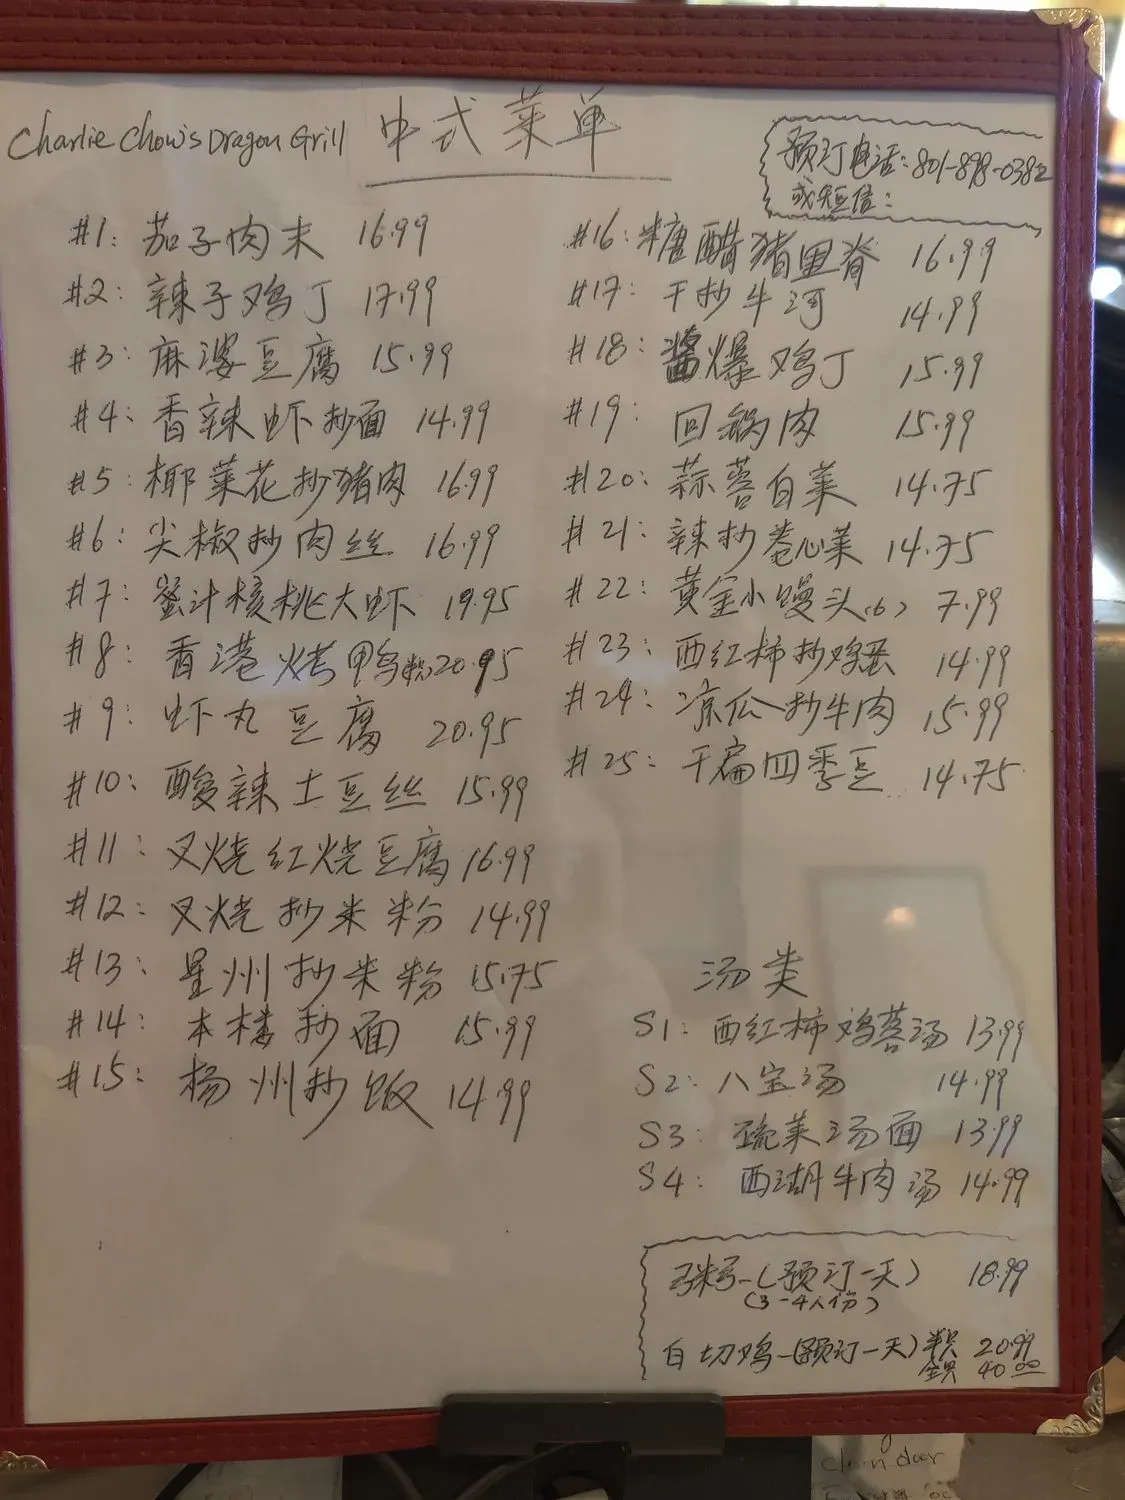 Charlie Chow's Dragon Grill 中式菜单
预订电话: 801-898-0382
或短信:
#1: 茄子肉末 16.99
#2: 辣子鸡丁 17.99
#3: 麻婆豆腐 15.99
#4: 香辣虾抄面 14.99
#5: 椰菜花抄猪肉 16.99
#6: 尖椒抄肉丝 16.99
#7: 蜜汁核桃大虾 19.95
#8: 香港烤鸭 20.95
#9: 虾丸豆腐 20.95
#10: 酸辣土豆丝 15.99
#11: 叉烧红烧豆腐 16.99
#12: 叉烧抄米粉 14.99
#13: 星州抄米粉 15.75
#14: 本楼抄面 15.99
#15: 杨州抄饭 14.99
#16: 糖醋猪里脊 16.99
#17: 干抄牛河 14.99
#18: 酱爆鸡丁 15.99
#19: 回锅肉 15.99
#20: 蒜蓉白菜 14.75
#21: 辣抄卷心菜 14.75
#22: 黄金小馒头(6) 7.99
#23: 西红柿抄鸡蛋 14.99
#24: 凉瓜抄牛肉 15.99
#25: 干扁四季豆 14.75
汤类
S1: 西红柿鸡蓉汤 13.99
S2: 八宝汤 14.99
S3: 蔬菜汤面 13.99
S4: 西湖牛肉汤 14.99
粥-(预订一天) 18.99
(3-4人份)
白切鸡-(预订一天) 半只 20.99
全只 40.00
clean door